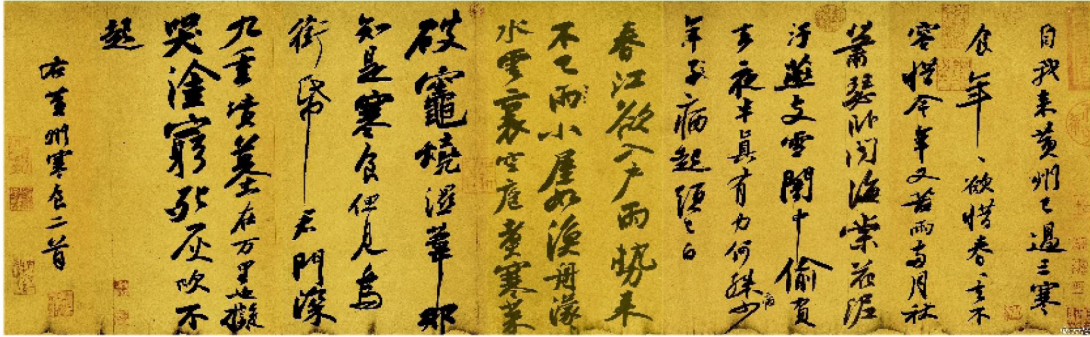 自我來黃州已過三寒
食年、欲惜春、去不
容惜今年又苦雨兩月秋
蕭瑟臥聞海棠花泥
汙燕支雪闇中偷負
去夜半真有力何殊少病
年子病起須已白
春江欲入戶雨勢來
不已雨小屋如漁舟濛、
水雲裏空庖煮寒菜
破竈燒濕葦那
知是寒食但見烏
銜帋君門深
九重墳墓在万里也擬
哭塗窮死灰吹不
起
右黃州寒食二首